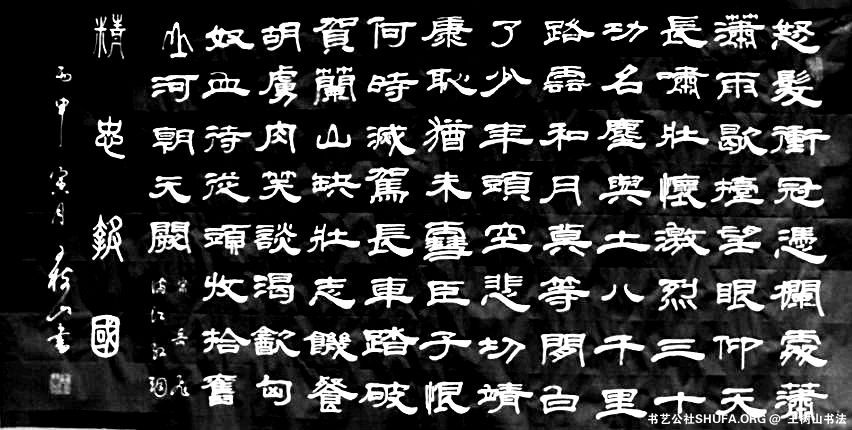 怒髮衝冠憑欄處瀟
瀟雨歇擡望眼仰天
長嘯壯懷激烈三十
功名塵與土八千里
路雲和月莫等閑白
了少年頭空悲切靖
康恥猶未雪臣子恨
何時滅駕長車踏破
賀蘭山缺壯志饑餐
胡虜肉笑談渴㱃匈
奴血待從頭收拾舊
山河朝天闕
宋岳飛
滿江紅詞
精忠報國
丙申寅月王樹山書
书艺公社SHUFA.ORG @ 王树山书法